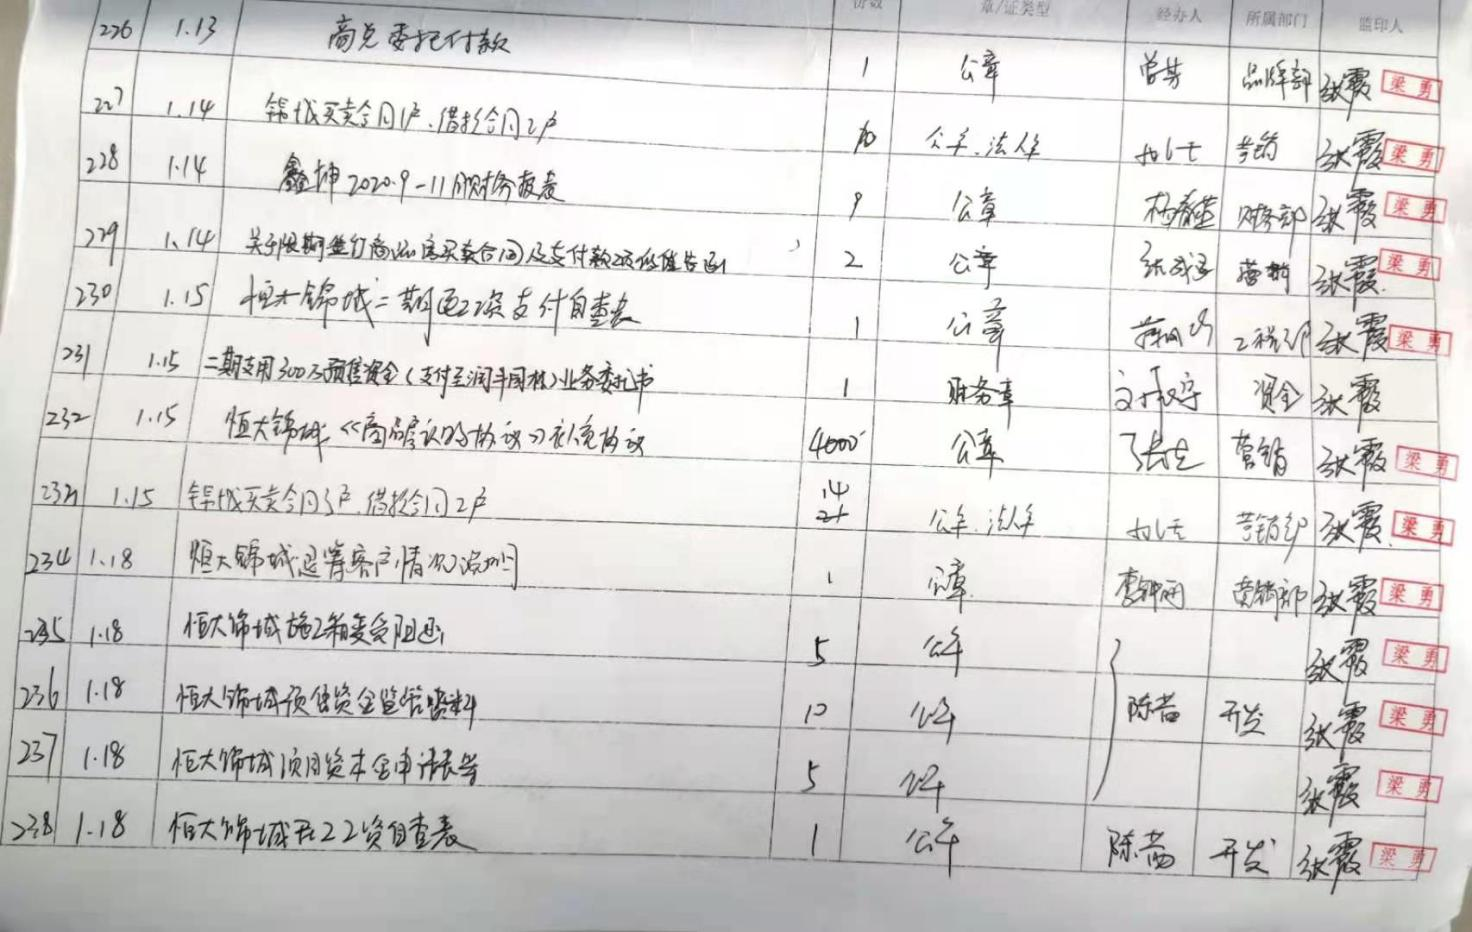 份数 章/证类型 经办人 所属部门 监印人
226 1.13 商兑委托付款 1 公章 品牌部 张霞 梁勇
227 1.14 锦城买卖合同1户、借款合同2户 10 公章、法人章 营销 张霞 梁勇
228 1.14 鑫坤2020.9-11月财务报表 9 公章 财务部 张霞 梁勇
229 1.14 关于限期签订商品房买卖合同及支付款项的催告函 2 公章 营销 张霞 梁勇
230 1.15 恒大锦城二期农民工工资支付自查表 1 公章 工程部 张霞 梁勇
231 1.15 二期支用300万预售资金(支付至润丰园林)业务委托书 1 财务章 资金 张霞
232 1.15 恒大锦城《商品房认购协议》补充协议 4000 公章 营销 张霞 梁勇
233 1.15 锦城买卖合同3户、借款合同2户 14 21 公章、法人章 营销部 张霞 梁勇
234 1.18 恒大锦城退筹客户情况说明 1 公章 营销部 张霞 梁勇
235 1.18 恒大锦城施工 5 公章 张霞 梁勇
236 1.18 恒大锦城预售资金监管资料 10 公章 陈茜 开发 张霞 梁勇
237 1.18 恒大锦城项目资本金申请表等 5 公章 张霞 梁勇
238 1.18 恒大锦城 工资自查表 1 公章 陈茜 开发 张霞 梁勇